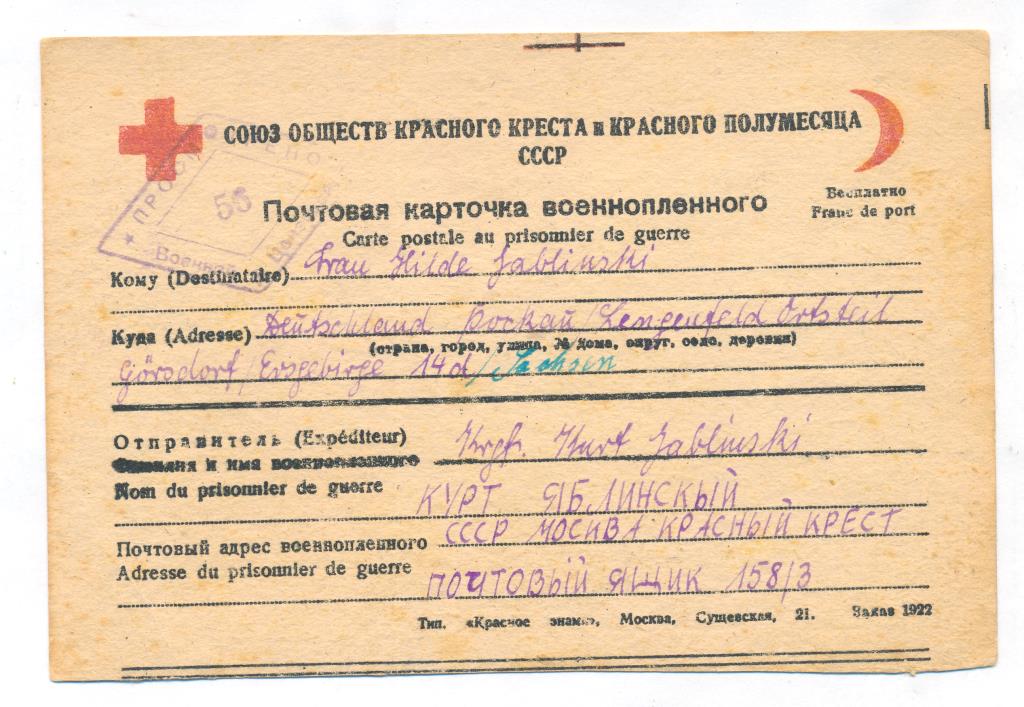 СОЮЗ ОБЩЕСТВ КРАСНОГО КРЕСТА и КРАСНОГО ПОЛУМЕСЯЦА
СССР
55
Почтовая карточка военнопленного
Бесплатно
Franc de port
Carte postale au prisonnier de guerre
Кому (Destinataire) Frau Hilde Jablinski
Куда (Adresse) Deutschland Pockau/Lengenfeld Ortsteil
(страна, город, улица, № дома, округ, село, деревня)
Görsdorf/Ersgebirge 14d/Sachsen
Отправитель (Expéditeur) Krgf. Kurt Jablinski
Фамилия и имя военнопленного
Nom du prisonnier de guerre
КУРТ ЯБЛИНСКЫЙ
СССР МОСКВА КРАСНЫЙ КРЕСТ
Почтовый адрес военнопленного
Adresse du prisonnier de guerre
ПОЧТОВЫЙ ЯЩИК 158/3
Тип. «Красное знамя», Москва, Сущевская, 21. Заказ 1922